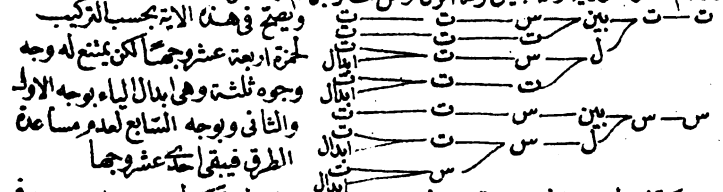 ويصح فى هذه الاية بحسب التركيب
لحمزة اربعة عشر وجهًا لكن يمتنع له وجه
وجوه ثلثة وهى ابدال الياء بوجه الاول
والثانى وبوجه السابع لعدم مساعدة
الطرق فيبقى احدى عشر وجها
ت ت بين س ت ت
ت ت ت
ل س ت ت ابدال
ت ت ابدال
س س بين س ت ت
ل س ت ت ابدال
س ت ابدال